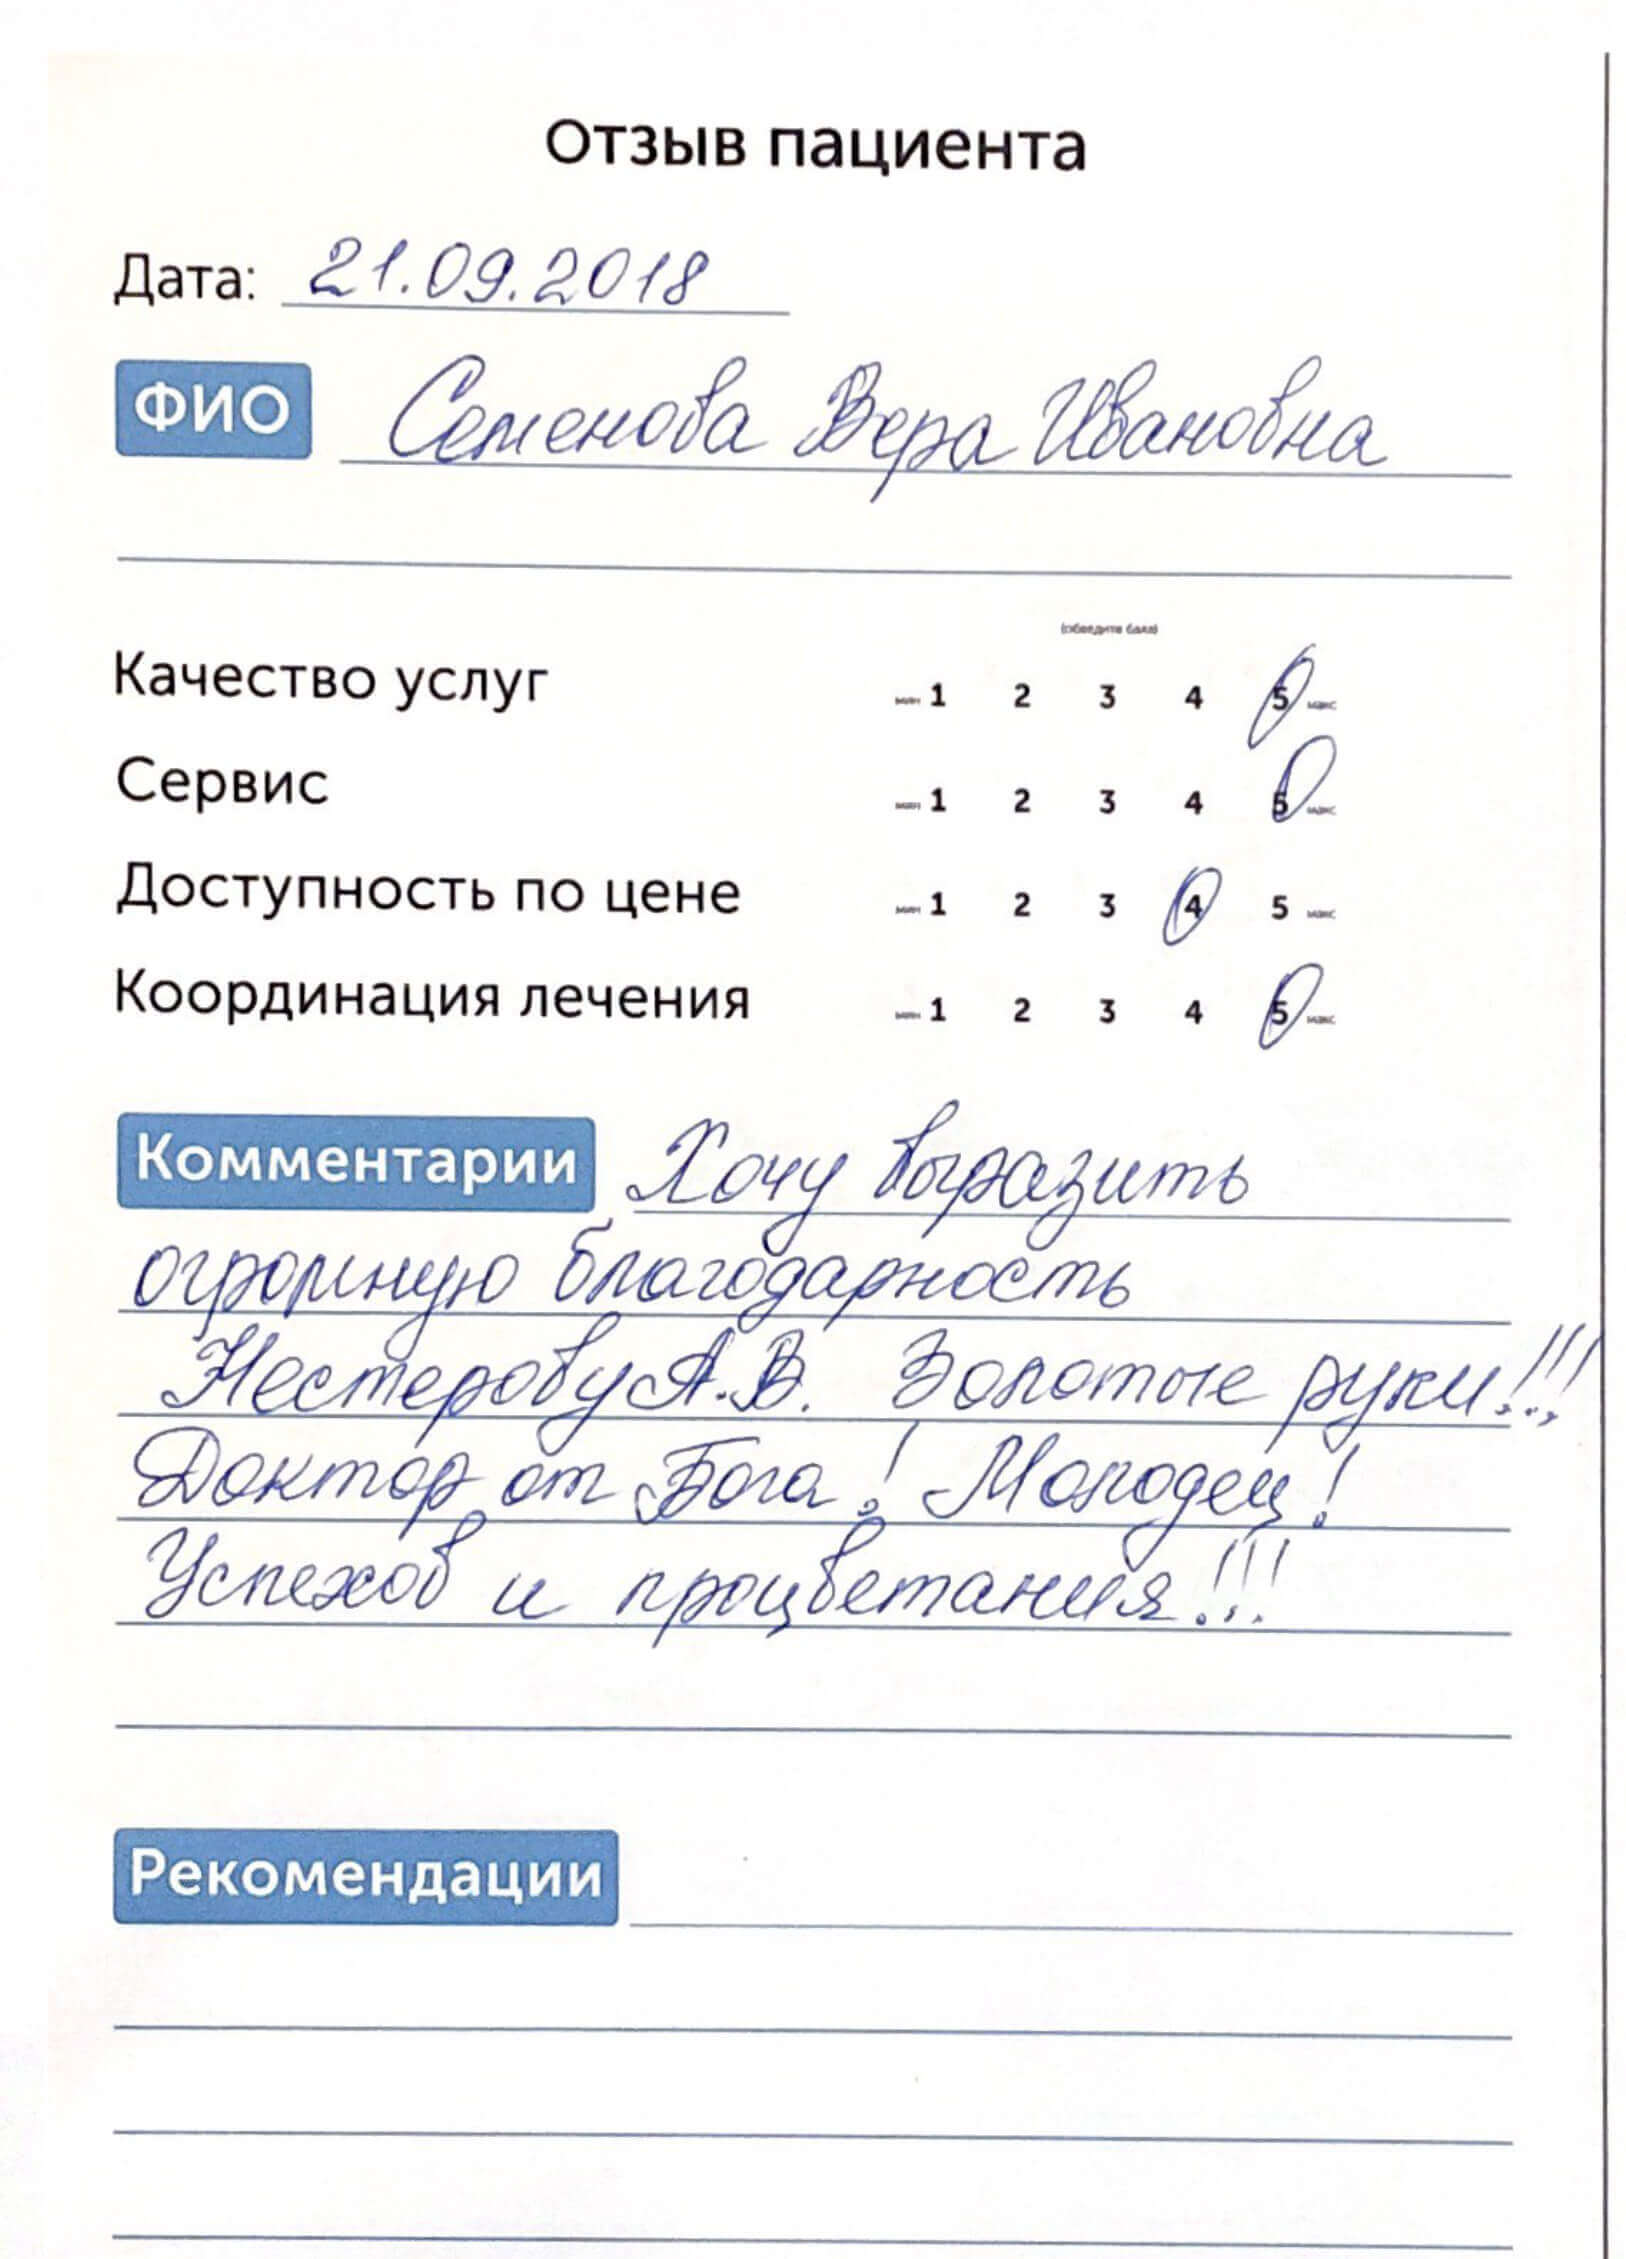 Отзыв пациента
Дата: 21.09.2018
ФИО Семенова Вера Ивановна
(обведите балл)
Качество услуг мин 1 2 3 4 5 макс
Сервис мин 1 2 3 4 5 макс
Доступность по цене мин 1 2 3 4 5 макс
Координация лечения мин 1 2 3 4 5 макс
Комментарии Хочу выразить
огромную благодарность
Нестерову А.В. Золотые руки!!!
Доктор от Бога! Молодец!
Успехов и процветания!!!
Рекомендации